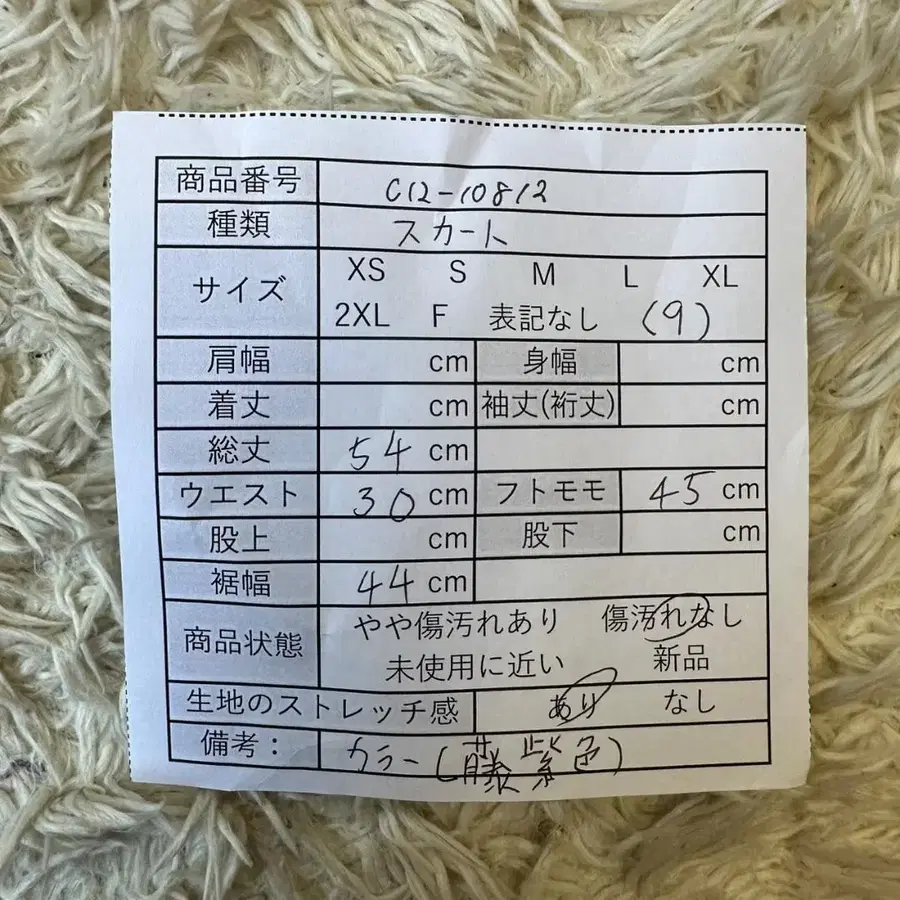 商品番号 C12-10812
種類 スカート
サイズ XS S M L XL
2XL F 表記なし (9)
肩幅 cm 身幅 cm
着丈 cm 袖丈(裄丈) cm
総丈 54 cm
ウエスト 30 cm フトモモ 45 cm
股上 cm 股下 cm
裾幅 44 cm
商品状態 やや傷汚れあり 傷汚れなし
未使用に近い 新品
生地のストレッチ感 あり なし
備考: カラー(藤紫色)